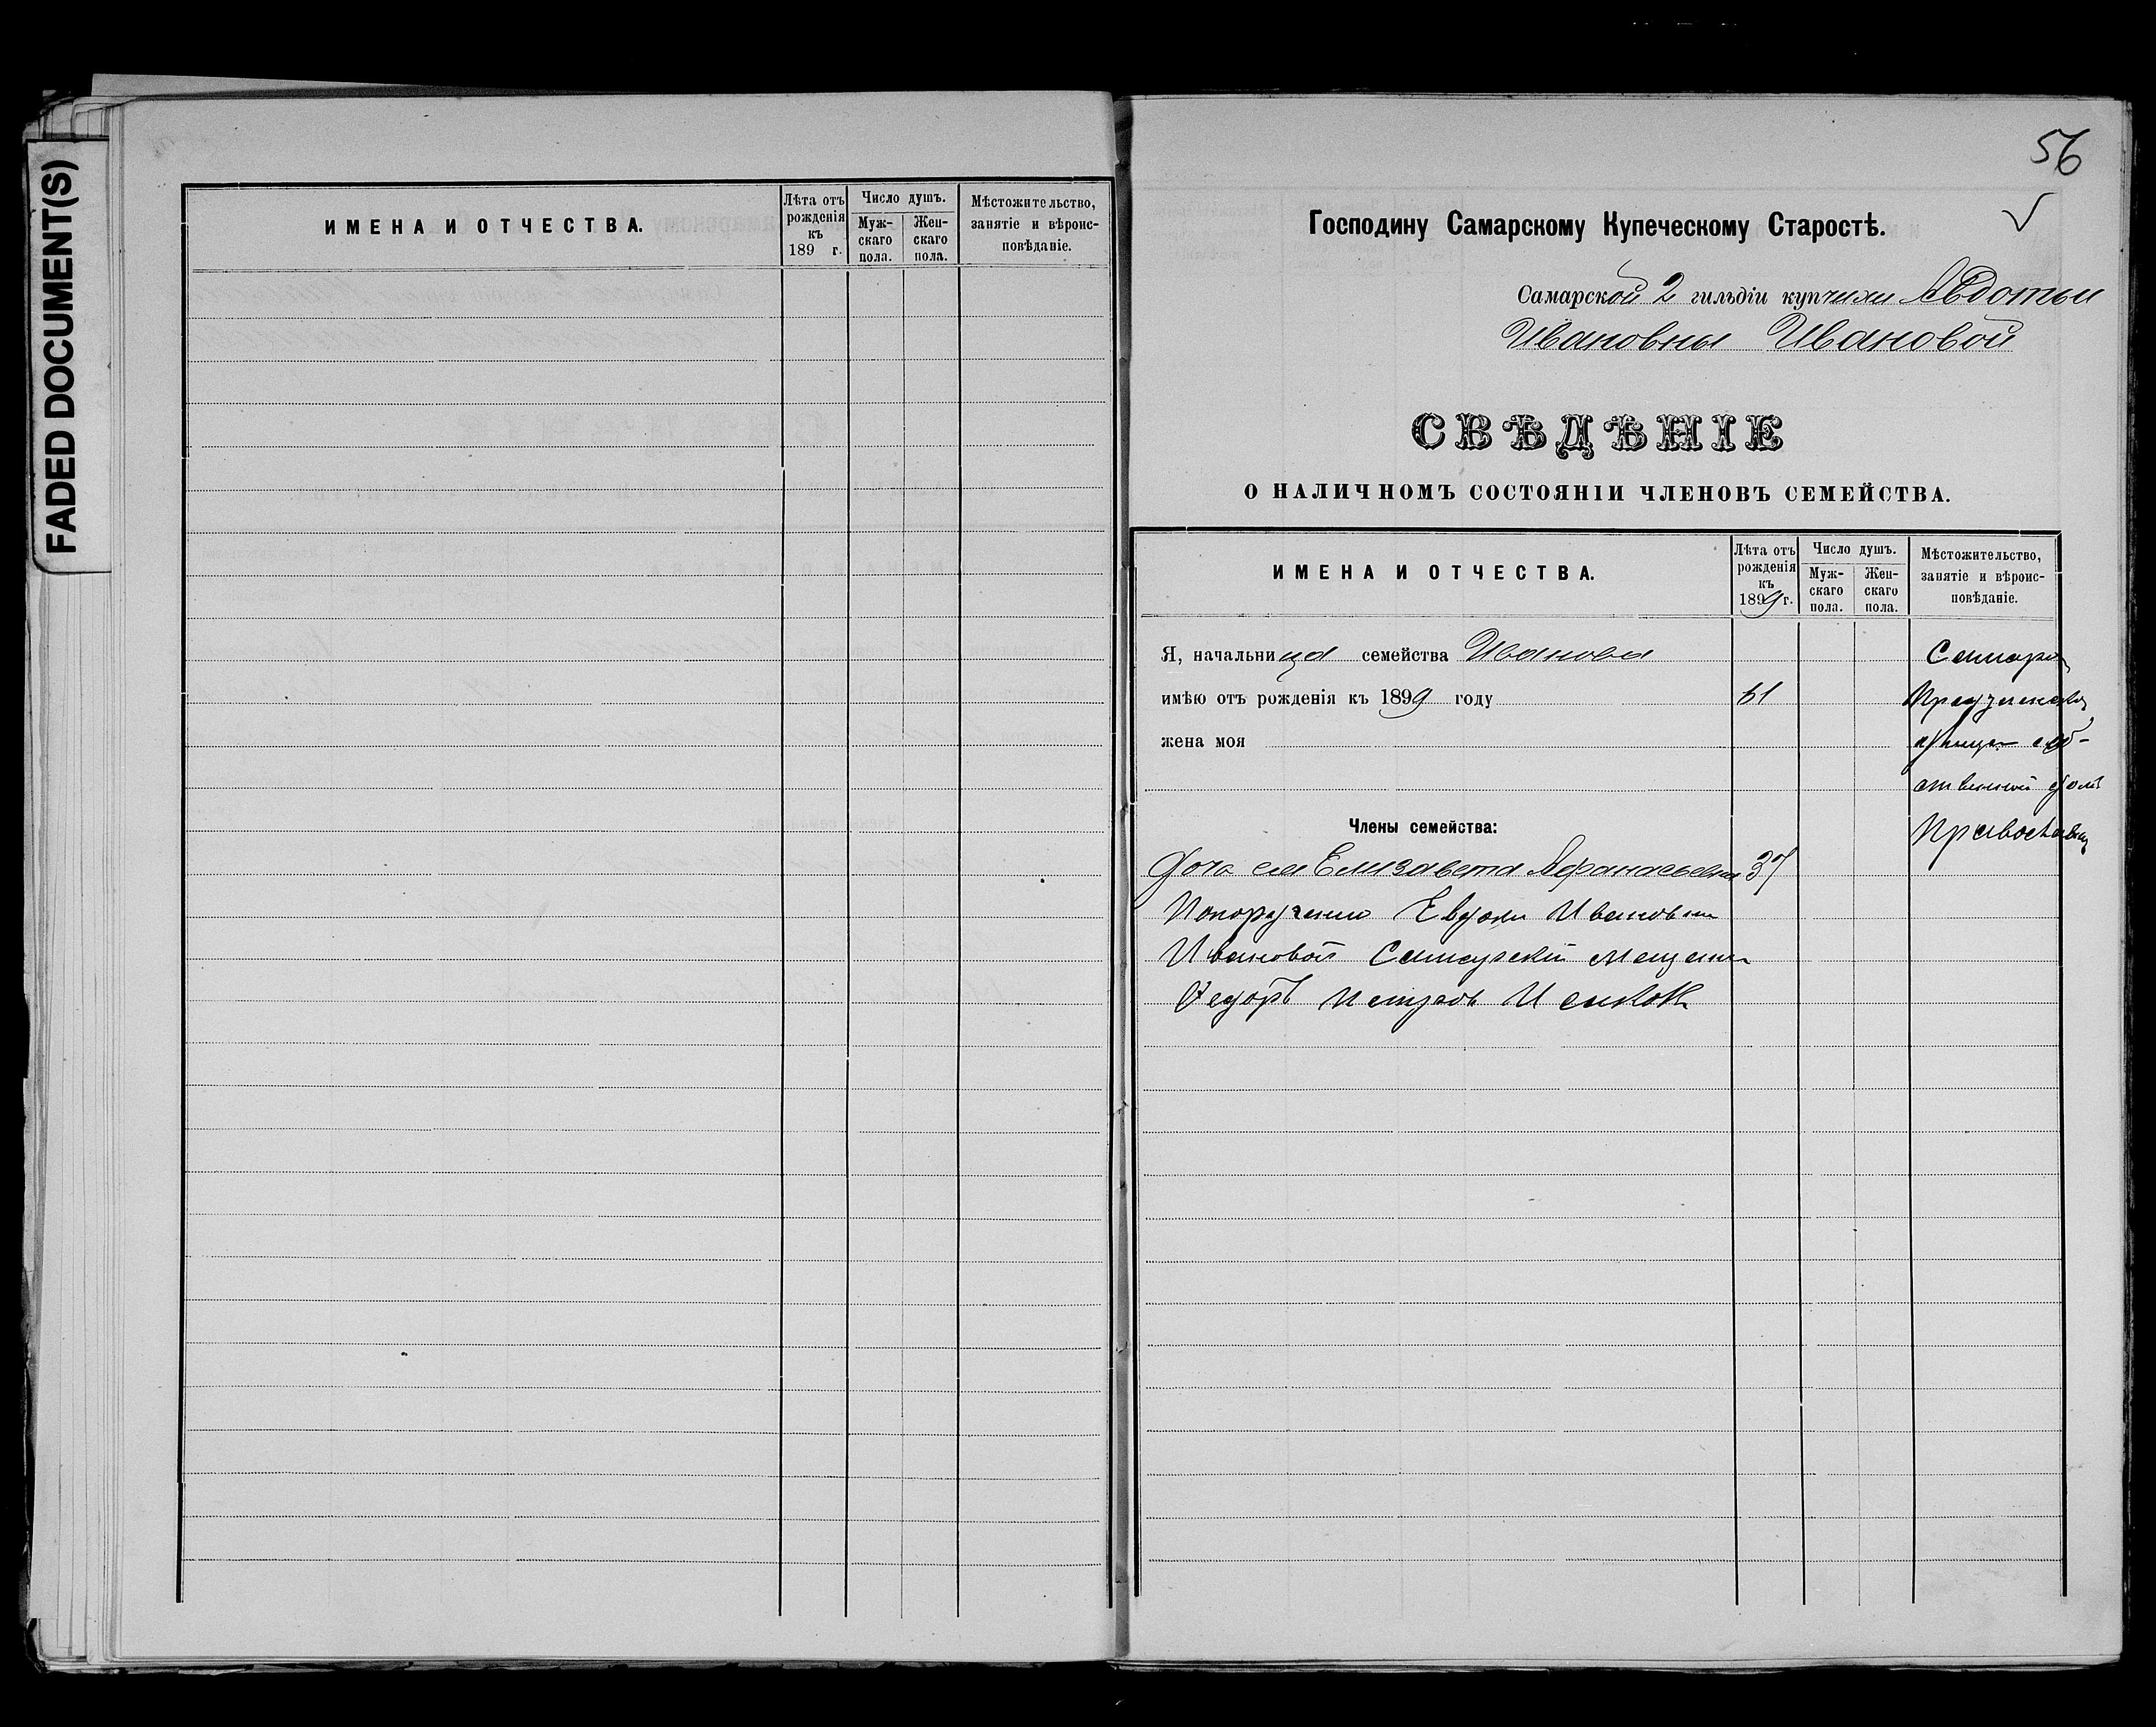 FADED DOCUMENT(S)
ИМЕНА И ОТЧЕСТВА.
Лѣта отъ рожденія къ 189 г.
Число душъ.
Мужскаго пола.
Женскаго пола.
Мѣстожительство, занятіе и вѣроисповѣданіе.
56
Господину Самарскому Купеческому Старостѣ.
Самарской 2 гильдіи купчихи Авдотьи
Ивановны Ивановой
СВѢДѢНІЕ
О НАЛИЧНОМЪ СОСТОЯНІИ ЧЛЕНОВЪ СЕМЕЙСТВА.
ИМЕНА И ОТЧЕСТВА.
Лѣта отъ рожденія къ 1899 г.
Число душъ.
Мужскаго пола.
Женскаго пола.
Мѣстожительство, занятіе и вѣроисповѣданіе.
Я, начальница семейства Иванова
имѣю отъ рожденія къ 1899 году 61
жена моя
Самара
улица соб-
ственный домъ
Члены семейства:
Дочь ея Елизавета Афанасьевна 37
По порученію Евдоти Ивановны
Ивановой Самарскій мещанин
Федоръ Петровъ